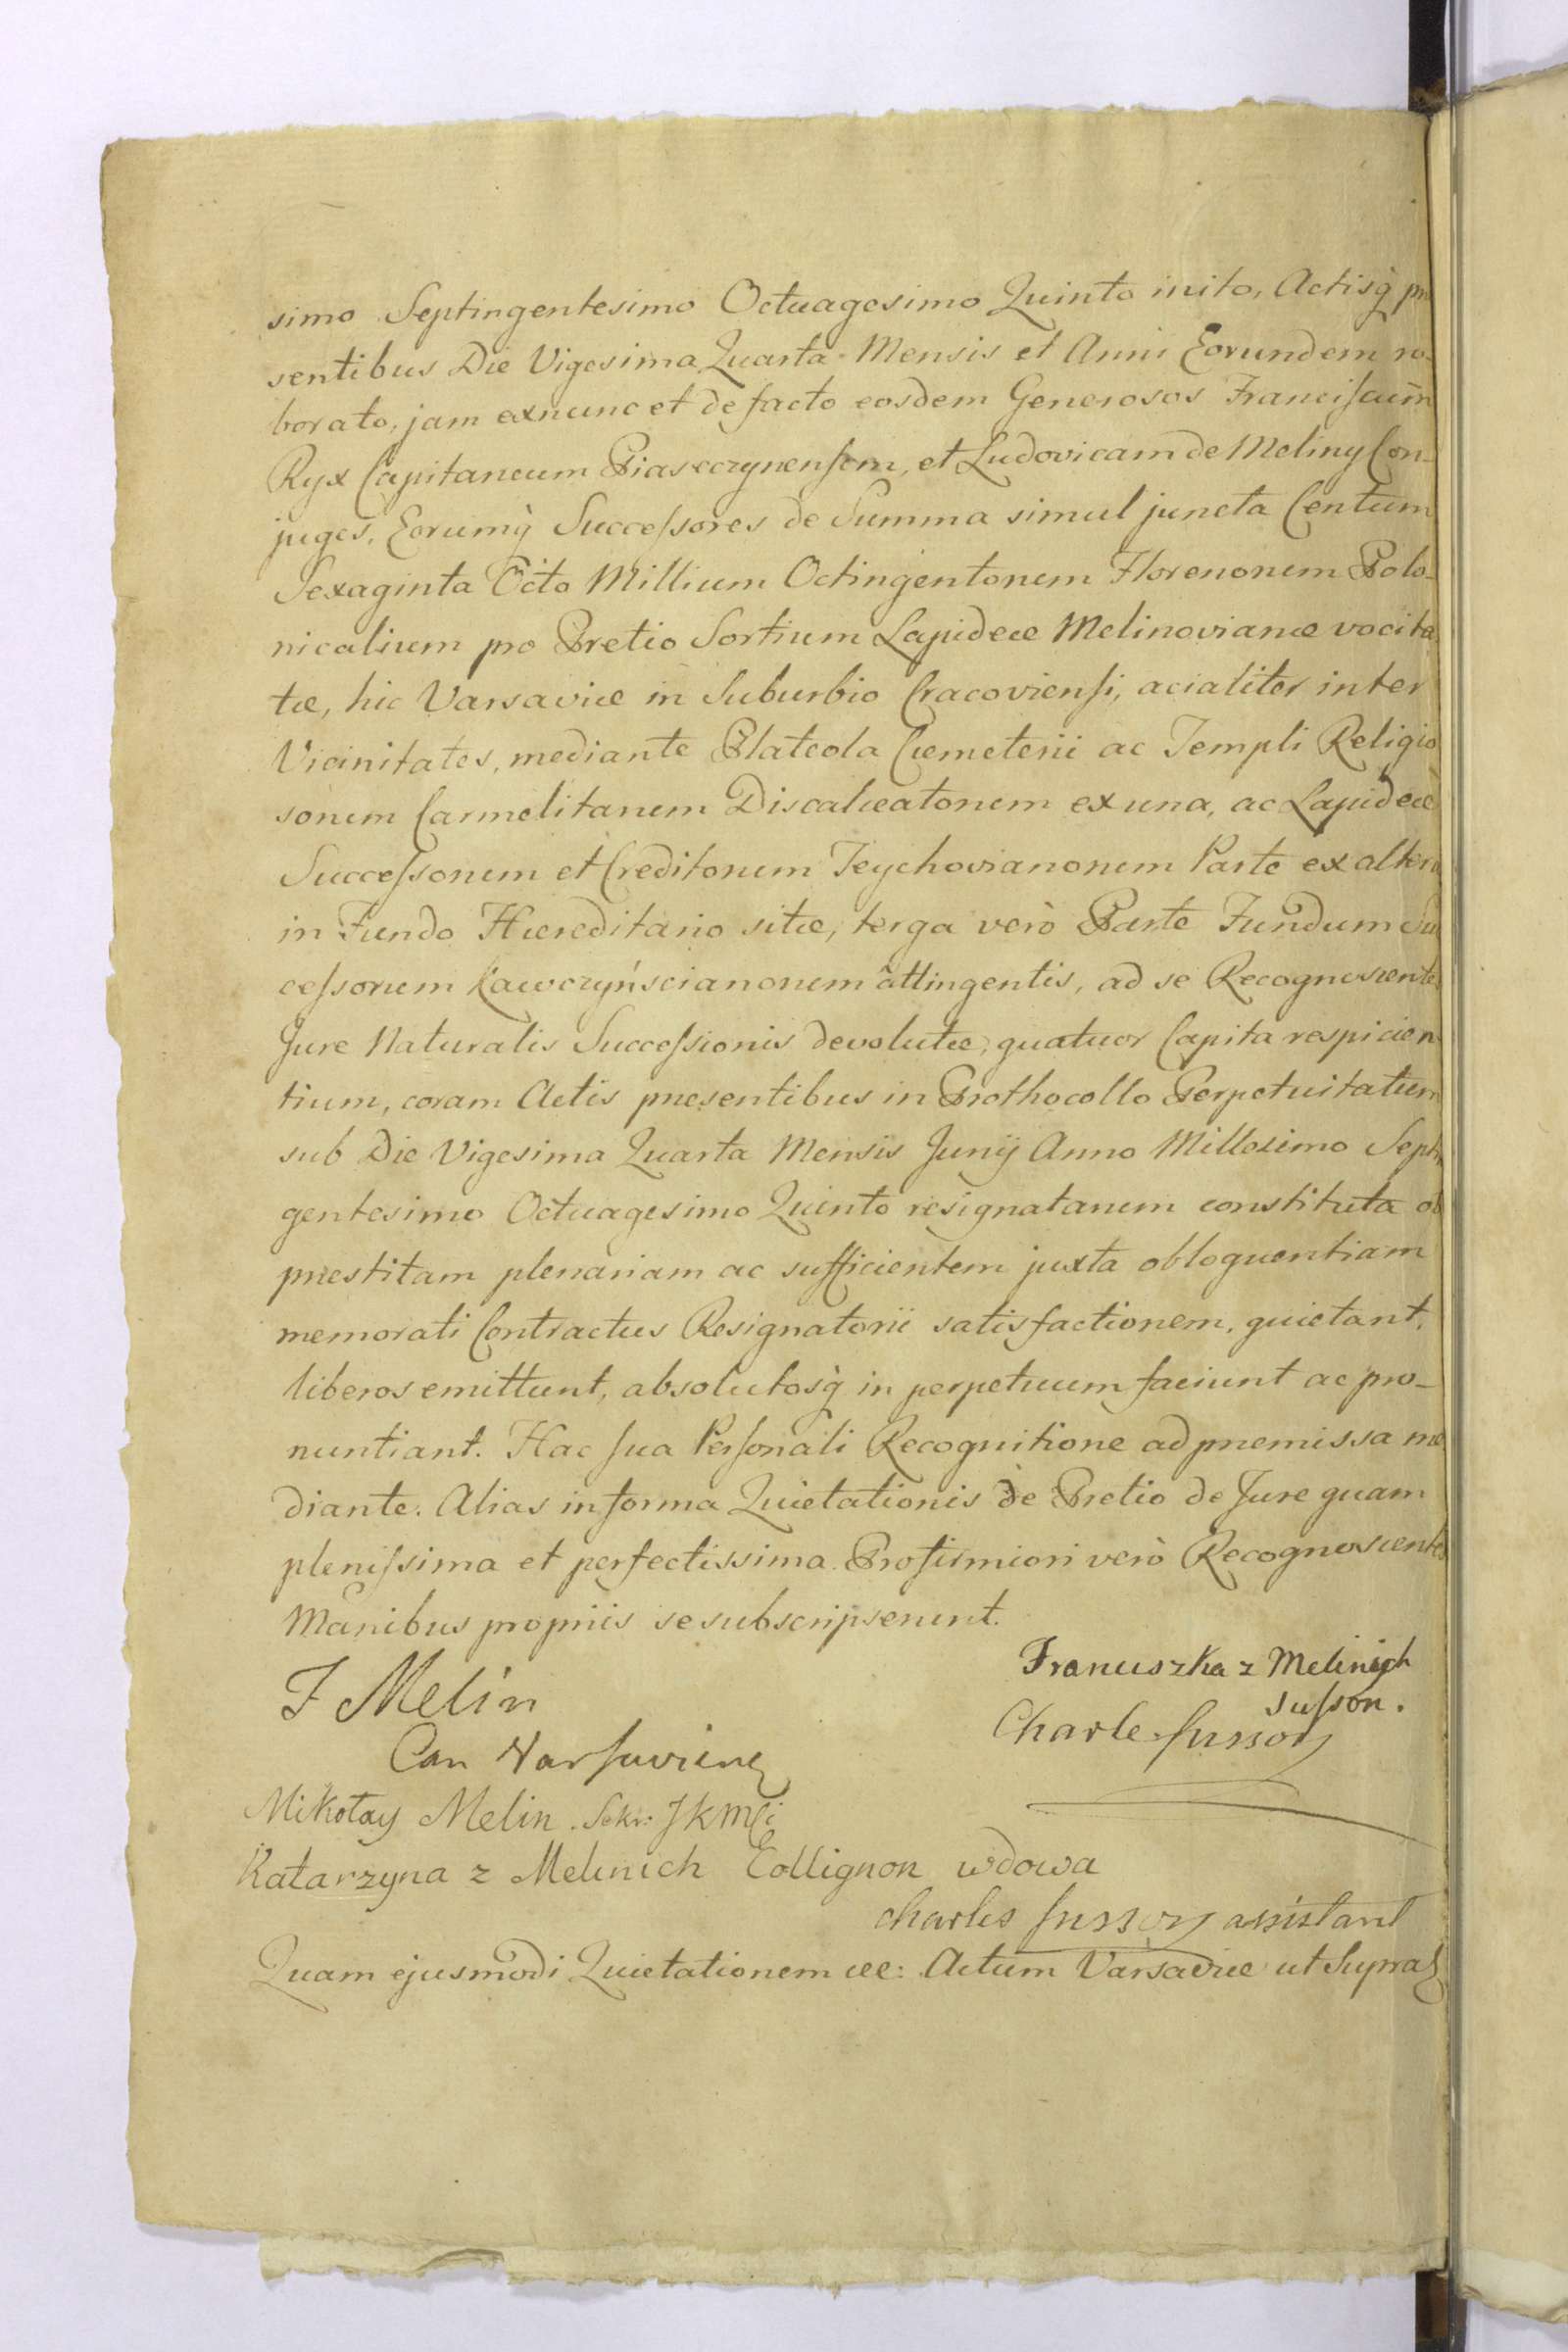 simo Septingentesimo Octuagesimo Quinto inito, Actisq̀ præ
sentibus Die Vigesima Quarta Mensis et Anni Eorundem ro-
borato, jam exnunc et de facto eosdem Generosos Franciſcum̃
Ryx Capitaneum Piaseczynenſem, et Ludovicam de Meliny Con-
juges, Eorumq̀ Succeſsores de Summa simul juncta Centum
Sexaginta Octo Millium Octingentorum Florenorum Polo-
nicalium pro Pretio Sortium Lapideæ Melinovianæ vocita
tæ, hic Varsaviæ in Suburbio Cracovienſi, acialiter inter
Vicinitates, mediante Plateola Cæmeterii ac Templi Religio
sorum Carmelitarum Discalceatorum ex una, ac Lapideæ
Succeſsorum et Creditorum Teychovianorum Parte ex altera
in Fundo Hæreditario sitæ, terga verò Parte Fundum Suc
ceſsorum Kawczyńscianorum attingentis, ad se Recognoscentes
Jure Naturalis Succeſsionis devolutæ, quatuor Capita respicien-
tium, coram Actis præsentibus in Prothocollo Perpetuitatum
sub Die Vigesima Quarta Mensis Junij Anno Millesimo Septin
gentesimo Octuagesimo Quinto resignatarum constituta ob
præstitam plenariam ac sufficientem juxta obloquentiam
memorati Contractus Resignatorii satisfactionem, quietant,
liberos emittunt, absolutosq̀ in perpetuum faciunt ac pro-
nuntiant. Hac ſua Perſonali Recognitione ad præmissa me
diante. Alias in forma Quietationis de Pretio de Jure quam
pleniſsima et perfectissima. Pro firmiori verò Recognoscentes
Manibus propriis se subscripserunt.
F Melin
Can Varſavienſ
Franciszka z Melinich
Suſson.
Charle Susson
Mikołay Melin. Sekr: JKMCi
Katarzyna z Melinich Collignon wdowa
charles Susson assistant
Quam ejusmodi Quietationem &c: Actum Varsaviæ ut Supra